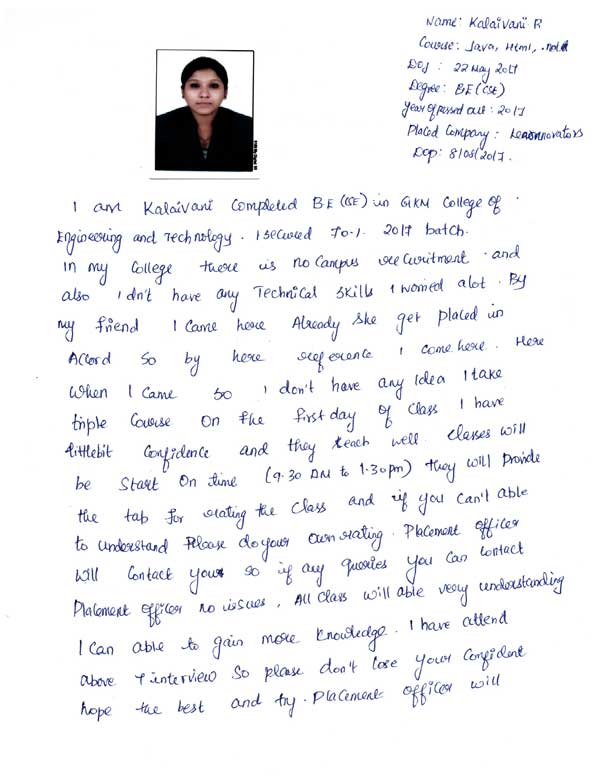 Name: Kalaivani R
Course: Java, Html,
DOJ : 22 May 2017
Degree: BE (CSE)
Year of passed out : 2017
Placed Company :
DOP: 8/08/2017.
I am Kalaivani Completed BE (CSE) in GKM College of
Engineering and Technology. I secured 70.1. 2017 batch.
In my College there is no Campus recuritment. and
also I dn't have any Technical skills I worried alot. By
my friend I Came here Already she get placed in
Accord so by here reference I come here. Here
when I Came so I don't have any Idea I take
triple Course On the first day of class I have
littlebit Confidence and they teach well. classes will
be Start On time (9.30 AM to 1.30pm) they will Provide
the tab for rating the Class and if you can't able
to understand Please do your own rating. Placement officer
will Contact yours so if any queries you Can Contact
Placement officer no issues. All Class will able very understanding
I Can able to gain more knowledge. I have attend
above 7 interview So please don't lose your Confident
hope the best and try. Placement officer will